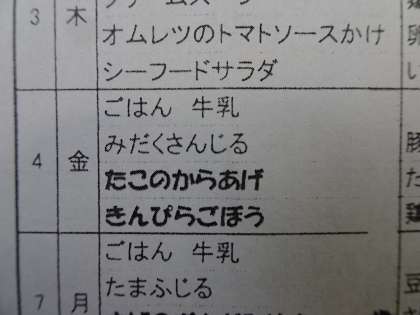 3 木
オムレツのトマトソースかけ
シーフードサラダ
4 金
ごはん 牛乳
みだくさんじる
たこのからあげ
きんぴらごぼう
7 月
ごはん 牛乳
たまふじる